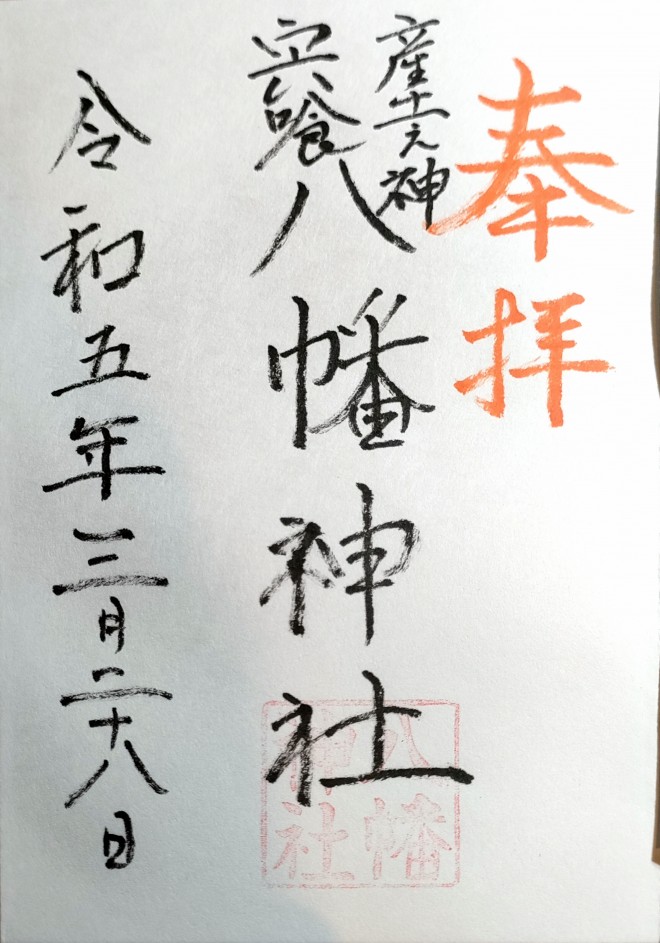 奉拝
産土之神
宍喰八幡神社
令和五年三月二十八日
八幡
神社